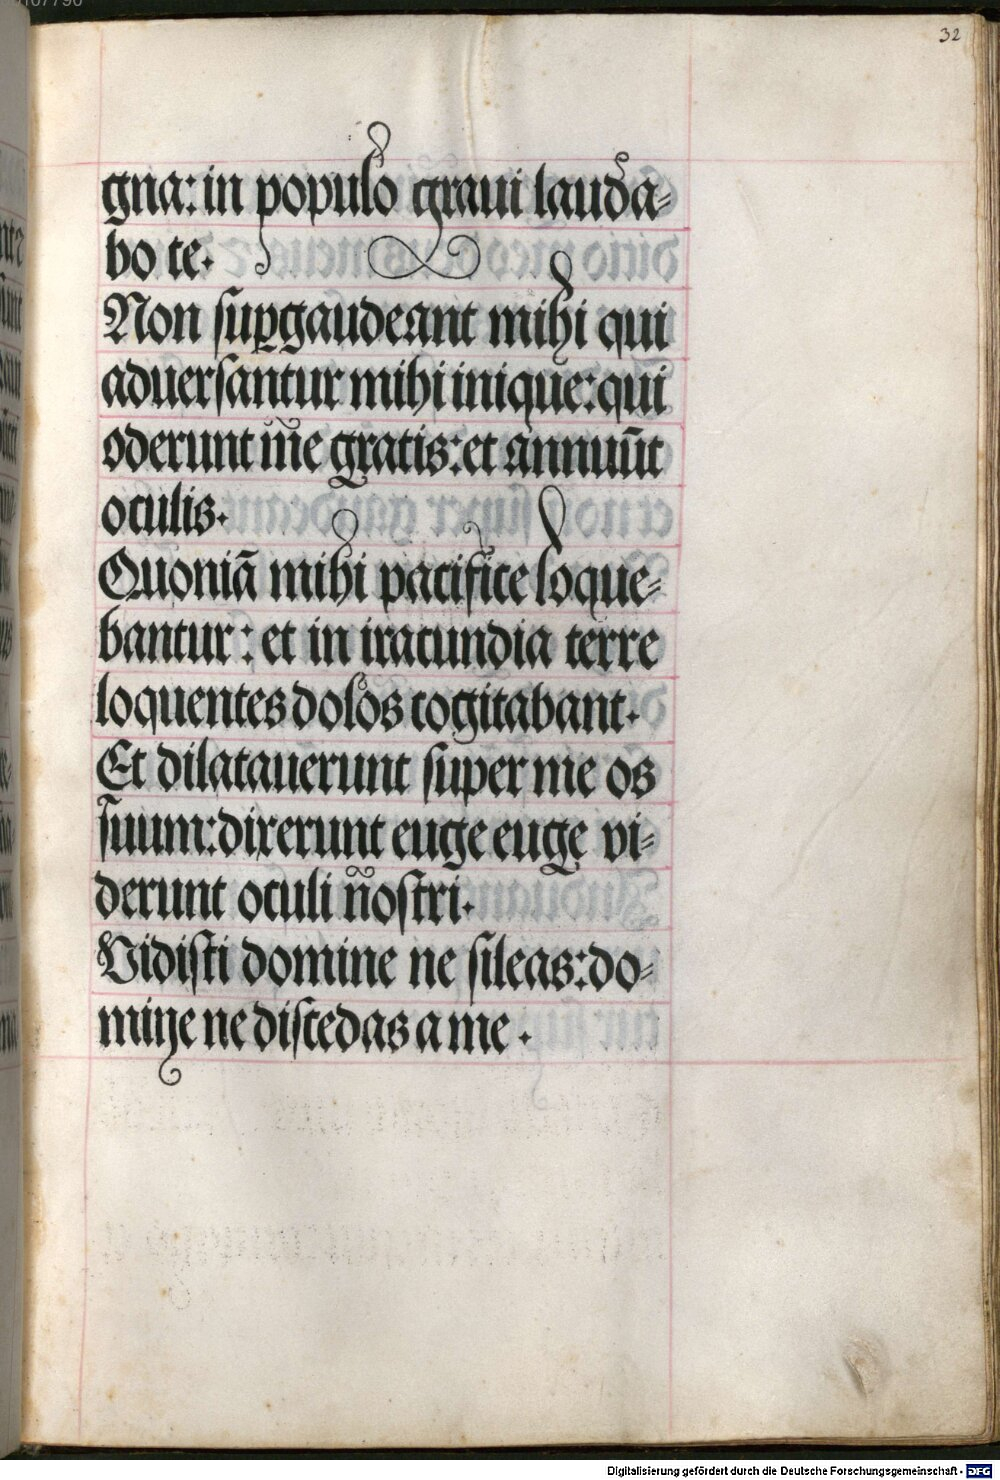 32
gna: in populo graui lauda-
bo te.
Non suꝑgaudeant mihi qui
aduersantur mihi inique: qui
oderunt me gratis: et annuūt
oculis.
Quoniā mihi pacifice loque-
bantur: et in iracundia terre
loquentes dolos cogitabant.
Et dilatauerunt super me os
suum: dixerunt euge euge vi-
derunt oculi nostri.
Vidisti domine ne sileas: do-
mine ne discedas a me.
Digitalisierung gefördert durch die Deutsche Forschungsgemeinschaft - DFG